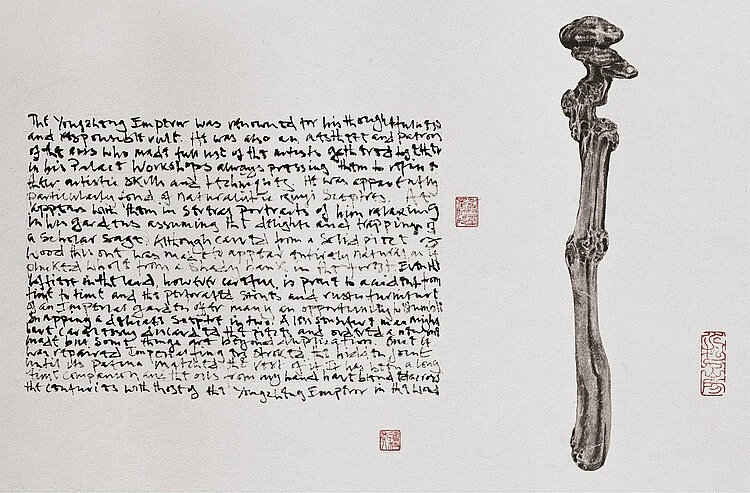 The Yongzheng Emperor was renowned for his thoughtfulness
and responsible rule. He was also an aesthete and patron
of the arts who made full use of the artists gathered together
in his Palace Workshops always pressing them to refine
their artistic skills and techniques. He was apparently
particularly fond of naturalistic ruyi Sceptres. He
appears with them in several portraits of him relaxing
in his gardens assuming the delights and trappings of
a Scholar Sage. Although carved from a Solid piece of
wood this one was made to appear entirely natural as if
plucked whole from a shady bank in the forest. Even the
loftiest in the land, however careful, is prone to accident from
time to time and the perforated stones and rustic furniture
of an Imperial garden offer many an opportunity to stumble
snapping a delicate Sceptre in two. A less man might
have cavalierly discarded the pieces and ordered a new one
made but some things are beyond duplication. Once it
was repaired Imperial fingers stroked the hidden joint
until its patina matched the rest of it. It has been a long
time companion and the oils from my hand have blended across
the centuries with those of the Yongzheng Emperor in the wood